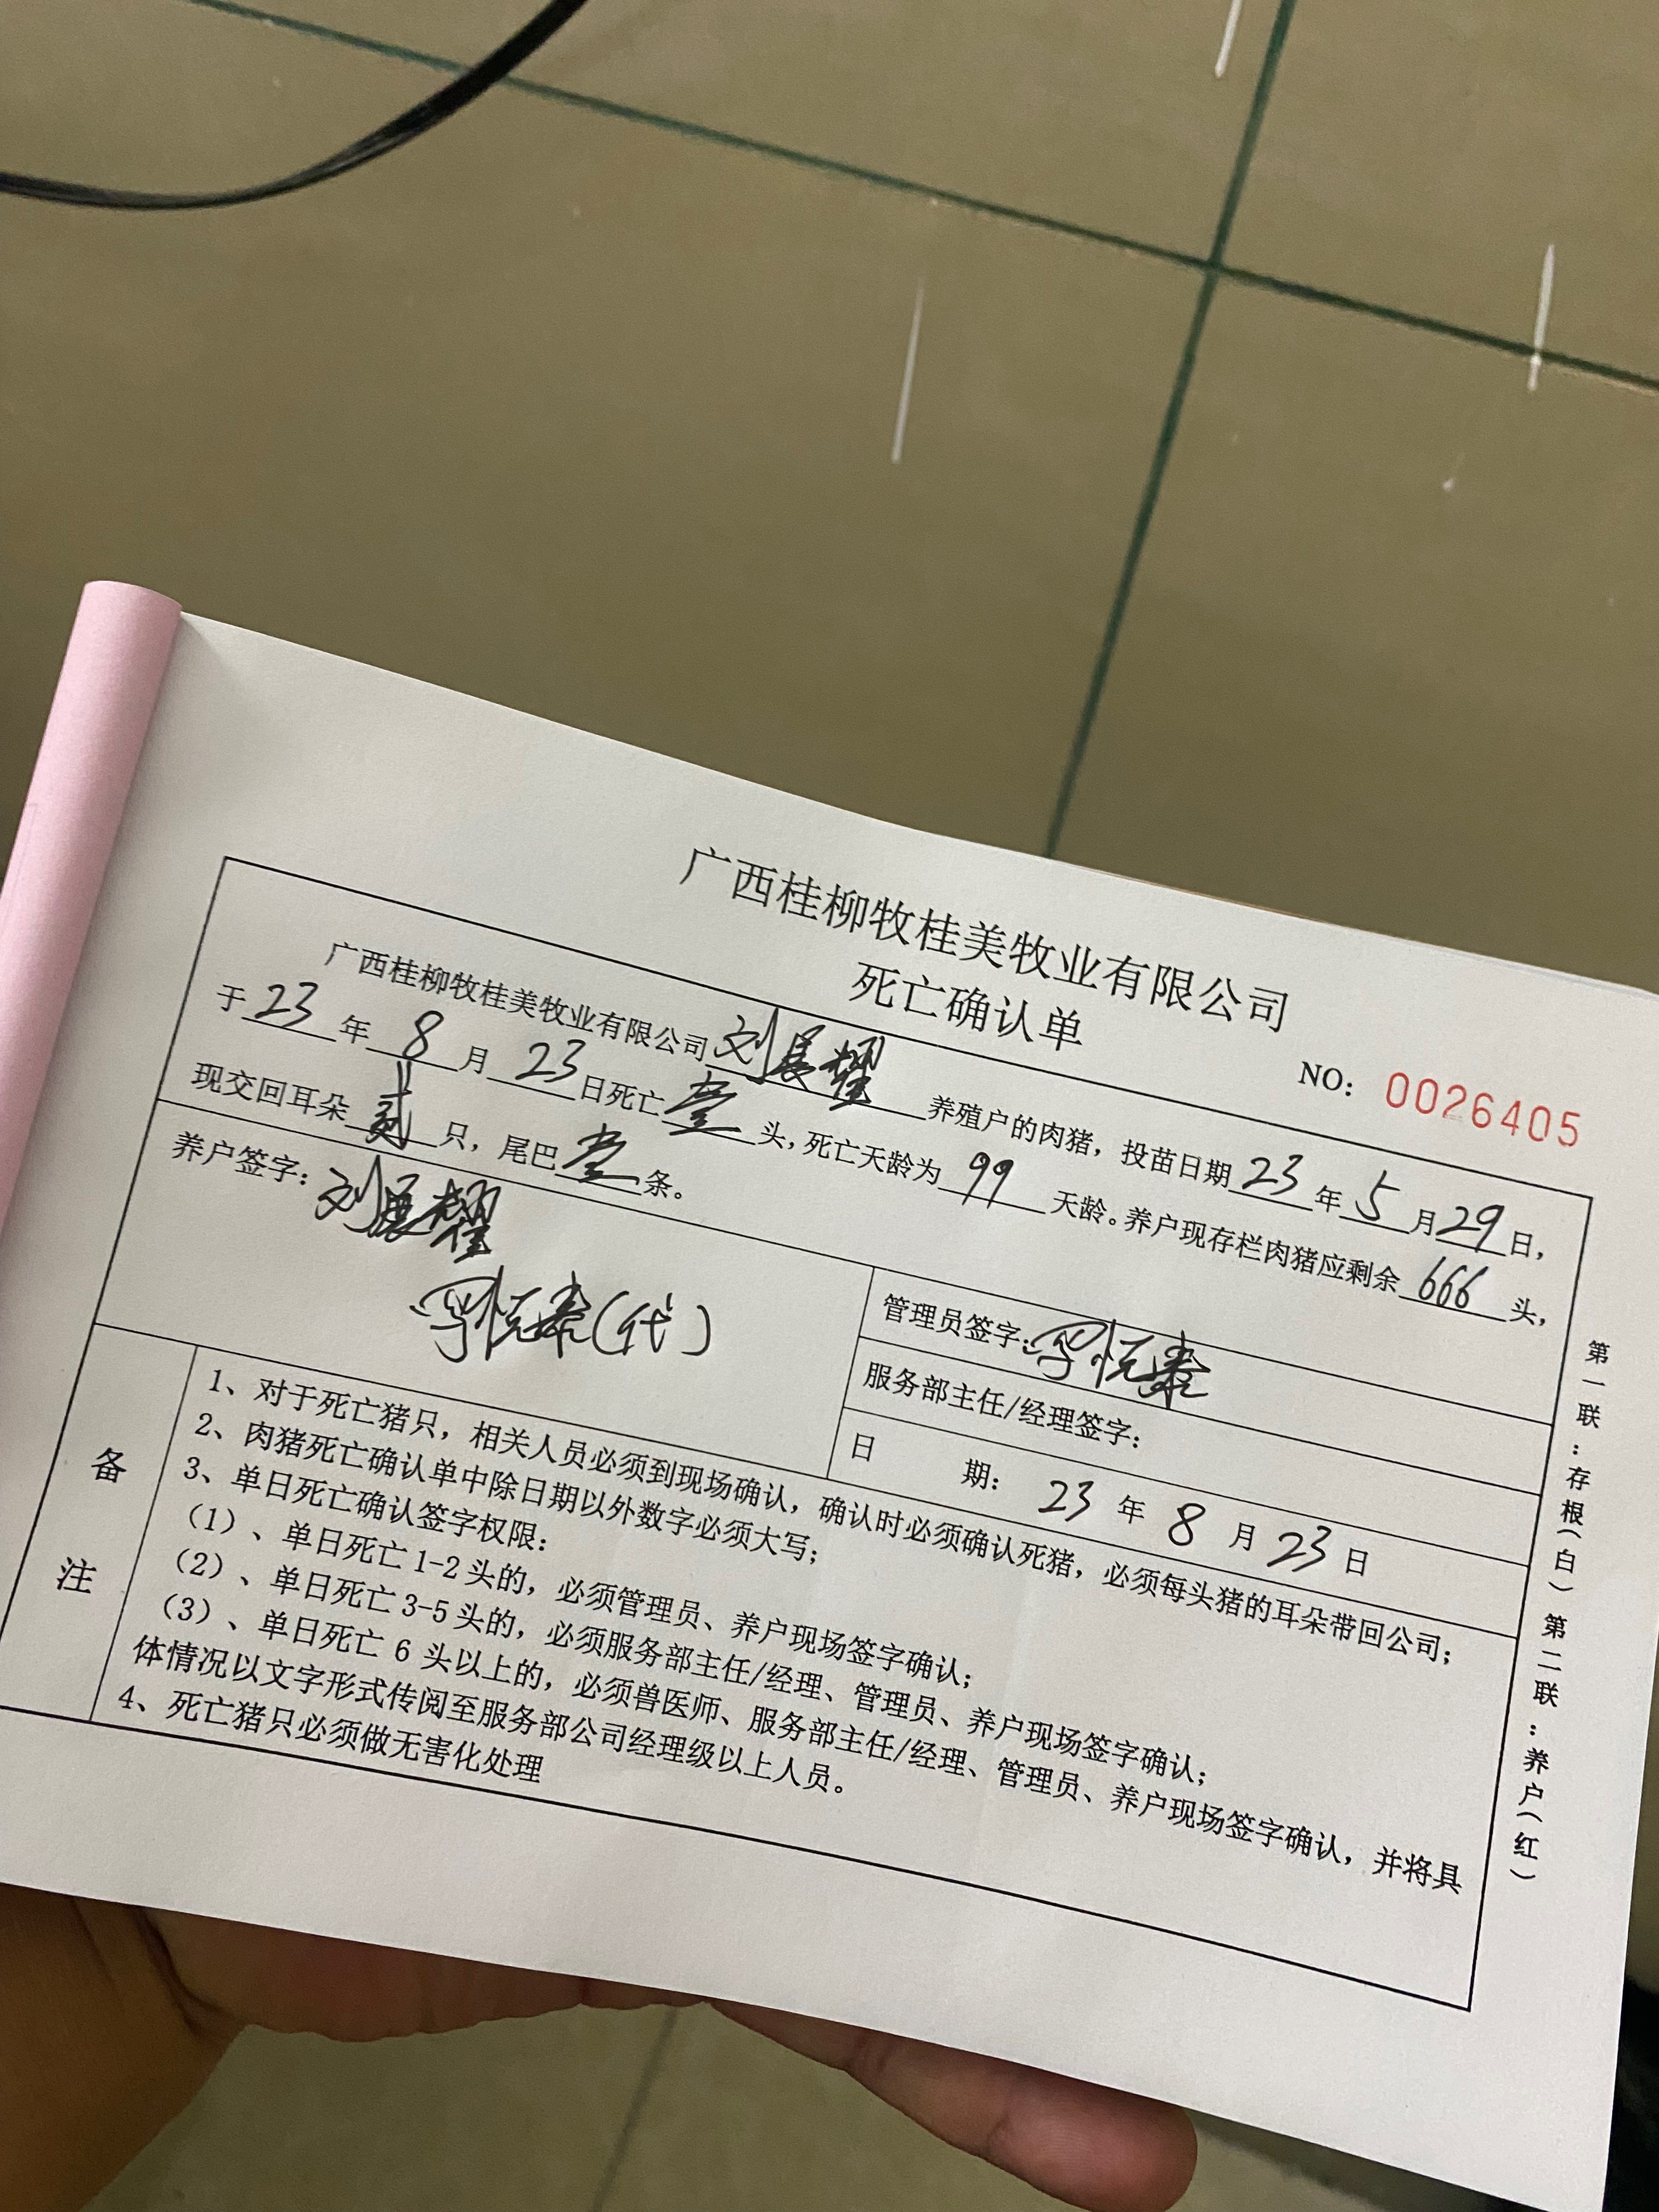 广西桂柳牧桂美牧业有限公司
死亡确认单
NO: 0026405
广西桂柳牧桂美牧业有限公司刘展耀养殖户的肉猪，投苗日期23年5月29日，
于23年8月23日死亡壹头，死亡天龄为99天龄。养户现存栏肉猪应剩余666头，
现交回耳朵贰只，尾巴壹条。
养户签字：刘展耀
(代)
管理员签字：
服务部主任/经理签字：
日期：23年8月23日
备注
1、对于死亡猪只，相关人员必须到现场确认，确认时必须确认死猪，必须每头猪的耳朵带回公司；
2、肉猪死亡确认单中除日期以外数字必须大写；
3、单日死亡确认签字权限：
（1）、单日死亡1-2头的，必须管理员、养户现场签字确认；
（2）、单日死亡3-5头的，必须服务部主任/经理、管理员、养户现场签字确认；
（3）、单日死亡6头以上的，必须兽医师、服务部主任/经理、管理员、养户现场签字确认，并将具
体情况以文字形式传阅至服务部公司经理级以上人员。
4、死亡猪只必须做无害化处理
第一联：存根（白）第二联：养户（红）